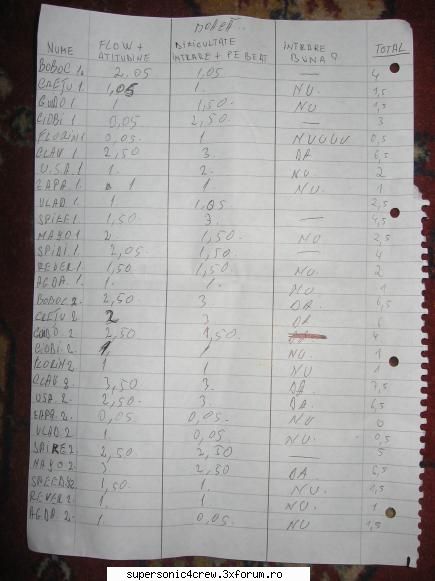 NUME FLOW + ATITUDINE DIFICULTATE INTRARE + PE BEAT INTRARE BUNA? TOTAL
BOBOC 1. 2,05 1,05 — 4
CREȚU 1 1,05 1. NU. 1,5
GUDO 1 1 1,50 NU 1,5
CIOBI 1 0,05 2,50 — 3
FLORIN 1 0,05 1 NUUUU 0,5
CLAU 1 2,50 3 DA 6,5
U.S.A 1. 1. 2. NU 2
ZAPA 1. 1 1 NU. 1
VLAD 1 1 1,05 2,5
SPIKE 1 1,50 3 — 4,5
MAYO 1 2 1,50 NU 2,5
SPIDI 1 2,05 1,50 — 4
REVER 1. 1,50 1,50 NU 2
AGDA 1. 1. 1. NU 1
BOBOC 2. 2,50 3 DA. 6,5
CREȚU 2 2 3 DA 6
2,50 1,50 4
CIOBI 2. 1 1 NU. 1
FLORIN 2 1 1 NU 1
CLAU 2. 3,50 3. DA 7,5
USA. 2. 2,50 3. DA. 6,5
ZAPA. 2. 0,05 0,05. NU 0
VLAD 2 1 0,05 NU. 0,5
SPIKE 2 2,50 2,50 — 5
MAYO 2 3 2,50 DA 6,5
1,50 1. NU. 1,5
REVER 2. 1 1 NU 1
AGDA 2. 1 0,05 NU 1,5
supersonic4crew.3xforum.ro